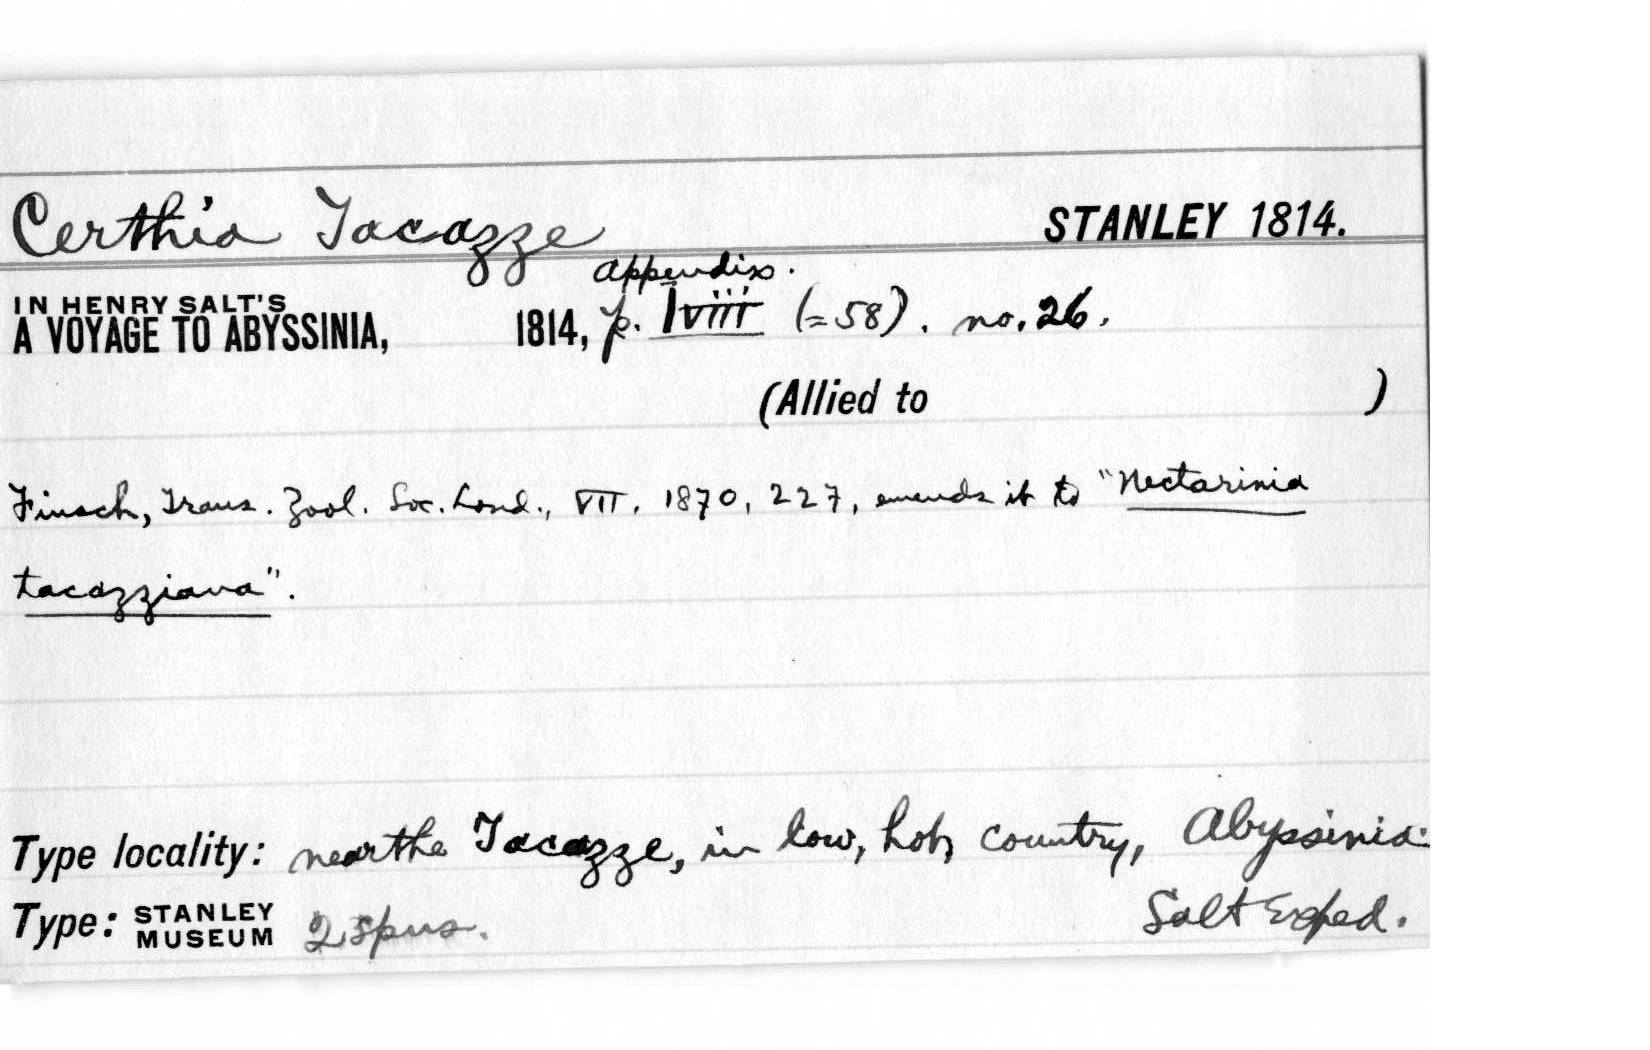 Certhia Tacazze STANLEY 1814.
appendix.
IN HENRY SALT'S
A VOYAGE TO ABYSSINIA, 1814, p. lviii (=58). no. 26.
(Allied to )
Finsch, Trans. Zool. Soc. Lond., VII, 1870, 227, emends it to "Nectarinia
tacazziana".
Type locality: near the Tacazze, in low, hot, country, Abyssinia.
Type: STANLEY MUSEUM 2 spms. Salt Exped.